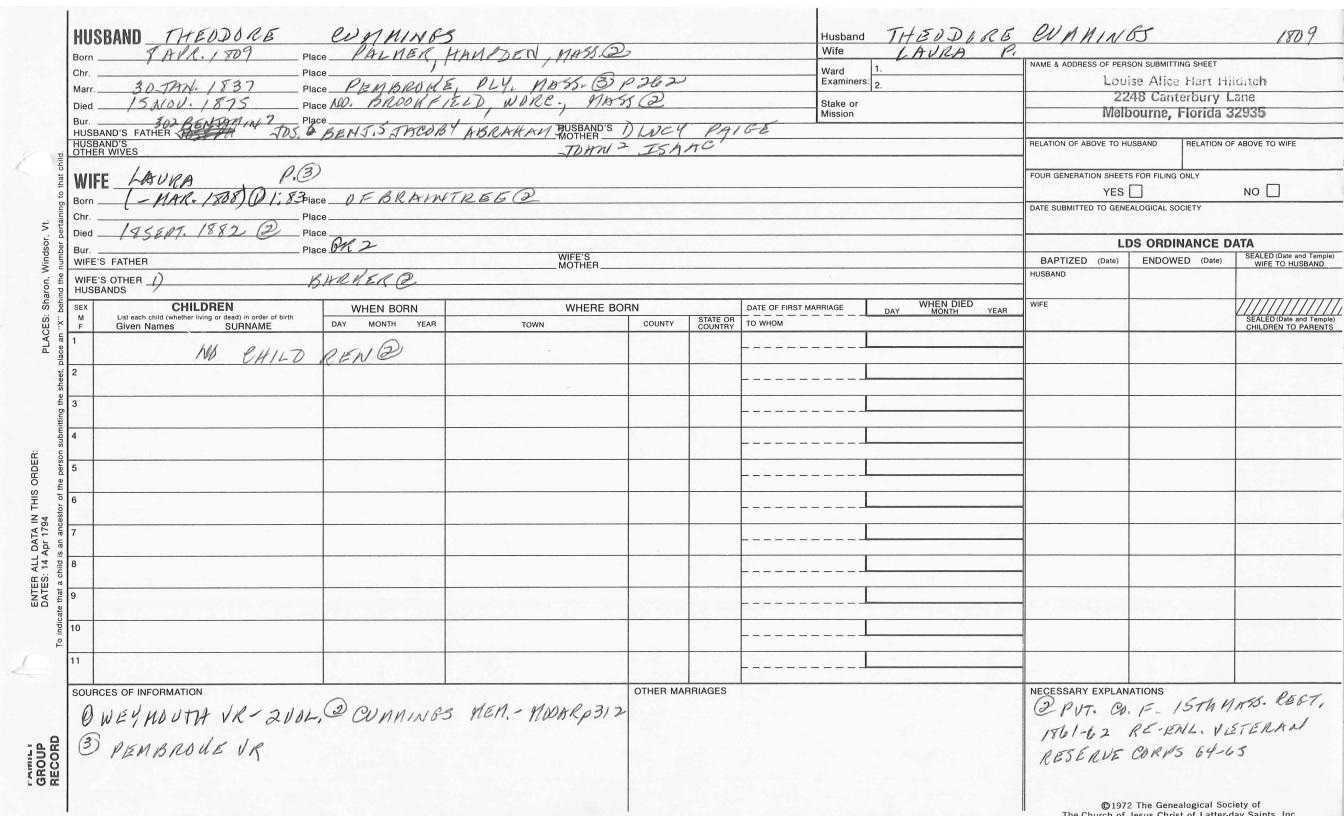 HUSBAND THEODORE CUMMINGS
Born 8 APR. 1809 Place PALMER, HAMPDEN, MASS. ②
Chr. Place
Marr. 30 JAN. 1837 Place PEMBROKE, PLY. MASS. ③ P262
Died 15 NOV. 1875 Place NO. BROOKFIELD, WORC., MASS ②
Bur. Place
302 BENJAMIN 7
HUSBAND'S FATHER JOS. 6 BENJ. 5 JACOB 4 ABRAHAM HUSBAND'S MOTHER 1) LUCY PAIGE
HUSBAND'S OTHER WIVES JOHN 2 ISAAC
WIFE LAURA P. ③
Born (- MAR. 1808) ① 1:83 Place OF BRAINTREE ②
Chr. Place
Died 18 SEPT. 1882 ② Place
Bur. Place OR 2
WIFE'S FATHER WIFE'S MOTHER
WIFE'S OTHER HUSBANDS 1) BARKER ②
Husband THEODORE CUMMINGS 1809
Wife LAURA P.
Ward Examiners: 1.
2.
Stake or Mission
NAME & ADDRESS OF PERSON SUBMITTING SHEET
Louise Alice Hart Hildrich
2248 Canterbury Lane
Melbourne, Florida 32935
RELATION OF ABOVE TO HUSBAND RELATION OF ABOVE TO WIFE
FOUR GENERATION SHEETS FOR FILING ONLY
YES NO
DATE SUBMITTED TO GENEALOGICAL SOCIETY
LDS ORDINANCE DATA
BAPTIZED (Date) ENDOWED (Date) SEALED (Date and Temple) WIFE TO HUSBAND
HUSBAND
WIFE
SEALED (Date and Temple) CHILDREN TO PARENTS
SEX M F
CHILDREN
List each child (whether living or dead) in order of birth
Given Names SURNAME
WHEN BORN
DAY MONTH YEAR
WHERE BORN
TOWN COUNTY STATE OR COUNTRY
DATE OF FIRST MARRIAGE
TO WHOM
WHEN DIED
DAY MONTH YEAR
1 NO CHILDREN ②
2
3
4
5
6
7
8
9
10
11
SOURCES OF INFORMATION
① WEYMOUTH VR - 2 VOL. ② CUMMINGS MEM. - MOOAR p312
③ PEMBROKE VR
OTHER MARRIAGES
NECESSARY EXPLANATIONS
② PVT. CO. F. 15TH MASS. REGT.
1861-62 RE-ENL. VETERAN
RESERVE CORPS 64-65
©1972 The Genealogical Society of
The Church of Jesus Christ of Latter-day Saints, Inc.
PLACES: Sharon, Windsor, Vt.
ENTER ALL DATA IN THIS ORDER:
DATES: 14 Apr 1794
To indicate that a child is an ancestor of the person submitting the sheet, place an "X" behind the number pertaining to that child.
FAMILY GROUP RECORD